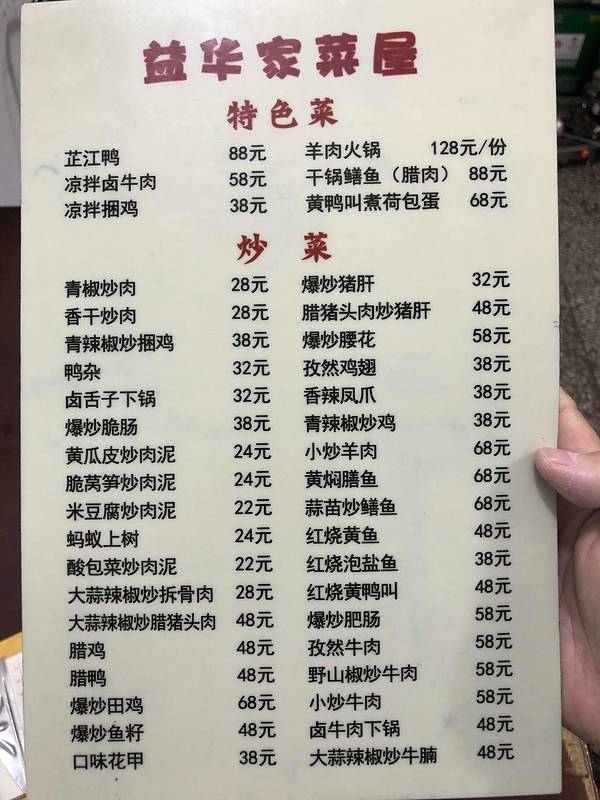 益华家菜屋
特色菜
芷江鸭 88元 羊肉火锅 128元/份
凉拌卤牛肉 58元 干锅鳝鱼（腊肉） 88元
凉拌捆鸡 38元 黄鸭叫煮荷包蛋 68元
炒菜
青椒炒肉 28元 爆炒猪肝 32元
香干炒肉 28元 腊猪头肉炒猪肝 48元
青辣椒炒捆鸡 38元 爆炒腰花 58元
鸭杂 32元 孜然鸡翅 38元
卤舌子下锅 32元 香辣凤爪 38元
爆炒脆肠 38元 青辣椒炒鸡 38元
黄瓜皮炒肉泥 24元 小炒羊肉 68元
脆莴笋炒肉泥 24元 黄焖膳鱼 68元
米豆腐炒肉泥 22元 蒜苗炒鳝鱼 68元
蚂蚁上树 24元 红烧黄鱼 48元
酸包菜炒肉泥 22元 红烧泡盐鱼 38元
大蒜辣椒炒拆骨肉 28元 红烧黄鸭叫 48元
大蒜辣椒炒腊猪头肉 48元 爆炒肥肠 58元
腊鸡 48元 孜然牛肉 58元
腊鸭 48元 野山椒炒牛肉 58元
爆炒田鸡 68元 小炒牛肉 58元
爆炒鱼籽 48元 卤牛肉下锅 48元
口味花甲 38元 大蒜辣椒炒牛腩 48元